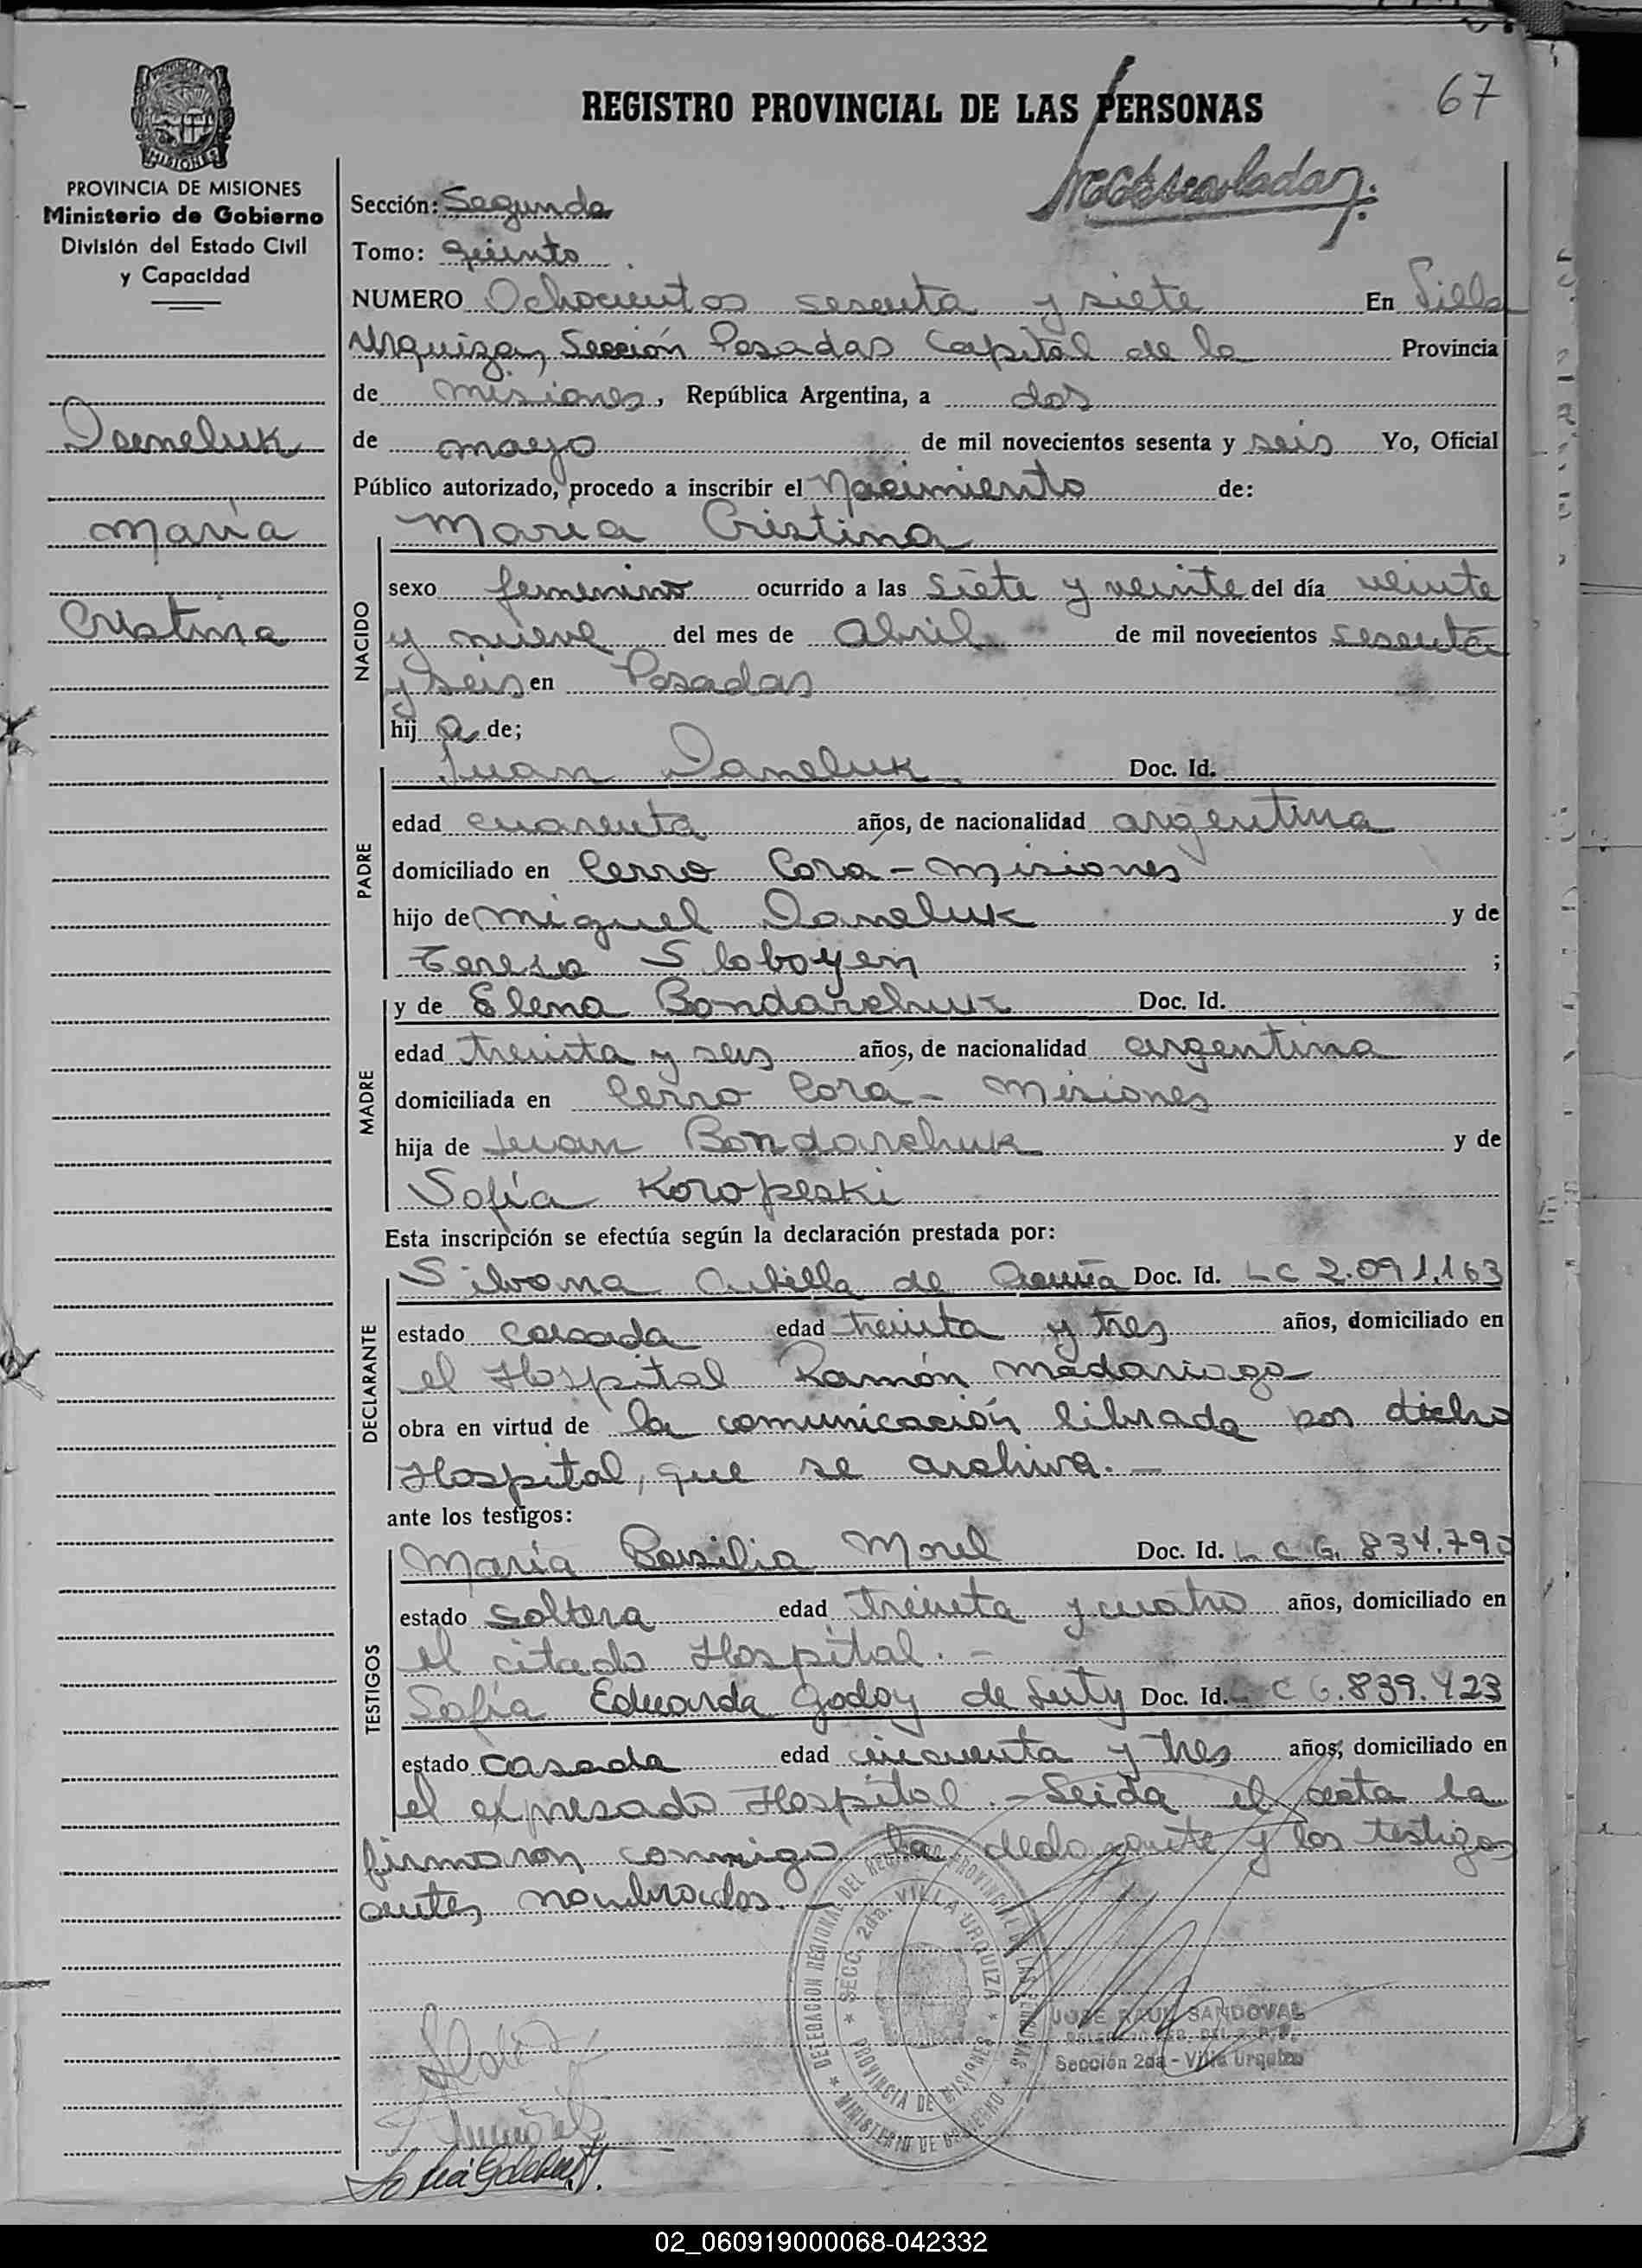 67
REGISTRO PROVINCIAL DE LAS PERSONAS
PROVINCIA DE MISIONES
Ministerio de Gobierno
División del Estado Civil
y Capacidad
MISIONES
Daneluk
María
Cristina
Sección: Segunda
Tomo: Quinto
NUMERO Ochocientos sesenta y siete En Villa
Urquiza, Sección Posadas Capital de la Provincia
de Misiones, República Argentina, a dos
de mayo de mil novecientos sesenta y seis Yo, Oficial
Público autorizado, procedo a inscribir el Nacimiento de:
María Cristina
NACIDO
sexo femenino ocurrido a las siete y veinte del día veinte
y nueve del mes de Abril de mil novecientos sesenta
y seis en Posadas
hij a de;
PADRE
Juan Daneluk Doc. Id.
edad cuarenta años, de nacionalidad argentina
domiciliado en Cerro Cora - Misiones
hijo de Miguel Daneluk y de
Teresa Sloboyen ;
MADRE
y de Elena Bondarchuk Doc. Id.
edad treinta y seis años, de nacionalidad argentina
domiciliada en Cerro Corá - Misiones
hija de Juan Bondarchuk y de
Sofía Koropeski
Esta inscripción se efectúa según la declaración prestada por:
DECLARANTE
Silvana Cubilla de Acuña Doc. Id. L C 2.091.163
estado casada edad treinta y tres años, domiciliado en
el Hospital Ramón Madariaga
obra en virtud de la comunicación librada por dicho
Hospital, que se archiva. —
ante los testigos:
TESTIGOS
María Basilia Morel Doc. Id. L C 6. 834.790
estado soltera edad treinta y cuatro años, domiciliado en
el citado Hospital. —
Sofía Eduarda Godoy de Doc. Id. L C 6.839.423
estado casada edad cincuenta y tres años, domiciliado en
el expresado Hospital. — Leida el acta la
firmaron conmigo la declarante y los testigos
antes nombrados. —
DELEGACION REGIONAL DEL REGISTRO PROVINCIAL DE LAS PERSONAS
SECC. 2da. VILLA URQUIZA
PROVINCIA DE MISIONES
MINISTERIO DE GOBIERNO
JOSE RAUL SANDOVAL
Sección 2da - Villa Urquiza
02_060919000068-042332